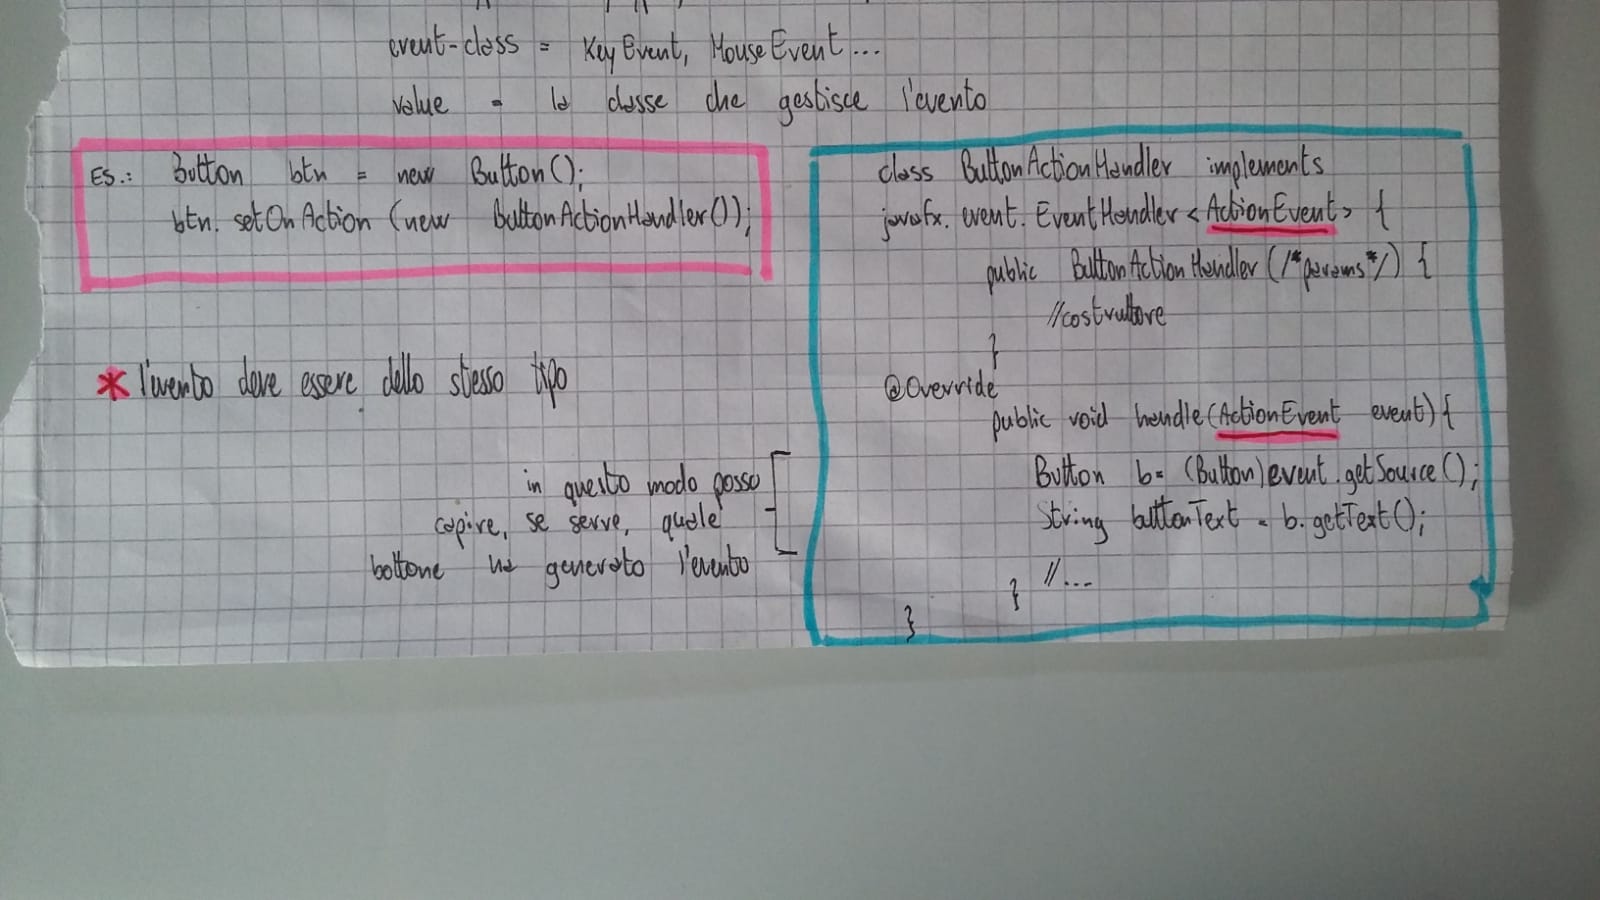 event-class = KeyEvent, MouseEvent...
value = la classe che gestisce l'evento
ES.: Button btn = new Button();
btn.setOnAction (new ButtonActionHandler());
* l'evento deve essere dello stesso tipo
in questo modo posso
capire, se serve, quale
bottone ha generato l'evento
class ButtonActionHandler implements
javafx.event.EventHandler<ActionEvent> {
public ButtonActionHandler(/*params*/) {
//costruttore
}
@Override
public void handle(ActionEvent event){
Button b= (Button)event.getSource();
String buttonText = b.getText();
//...
}
}